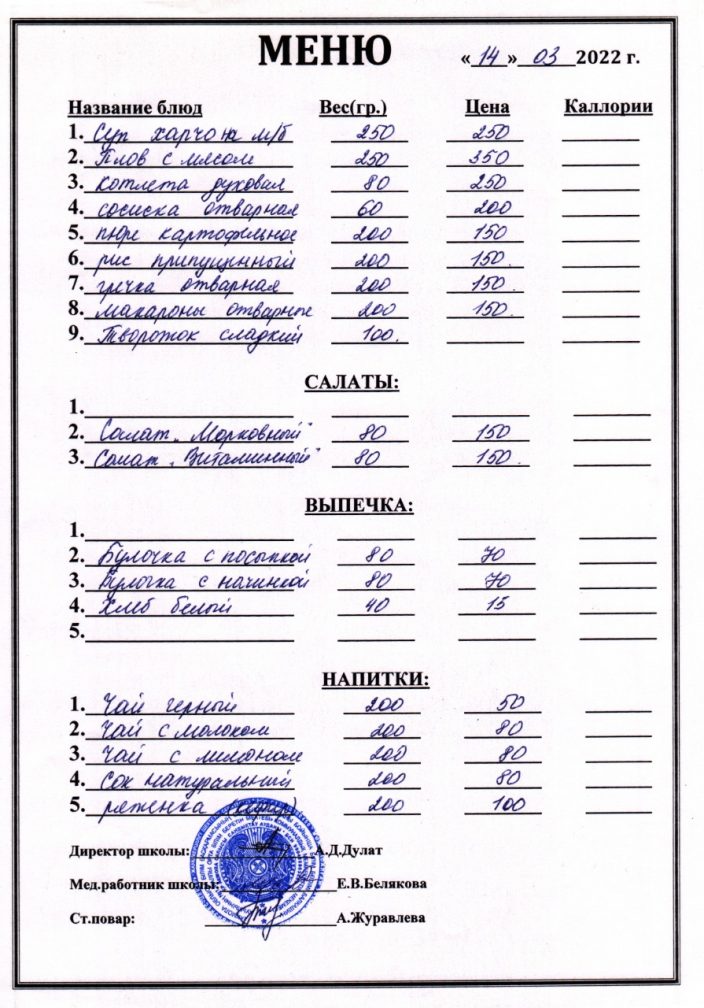 МЕНЮ «14» 03 2022 г.
Название блюд Вес(гр.) Цена Каллории
1. Суп харчо на м/б 250 250
2. Плов с мясом 250 350
3. котлета духовая 80 250
4. сосиска отварная 60 200
5. пюре картофельное 200 150
6. рис припущенный 200 150.
7. гречка отварная 200 150.
8. макароны отварные 200 150.
9. Творожок сладкий 100.
САЛАТЫ:
1.
2. Салат „Морковный" 80 150
3. Салат „Витаминный" 80 150.
ВЫПЕЧКА:
1.
2. Булочка с посыпкой 80 70
3. Булочка с начинкой 80 70
4. Хлеб белый 40 15
5.
НАПИТКИ:
1. Чай черный 200 50
2. Чай с молоком 200 80
3. Чай с лимоном 200 80
4. Сок натуральный 200 80
5. ряженка (кефир) 200 100
Директор школы: А.Д.Дулат
Мед.работник школы: Е.В.Белякова
Ст.повар: А.Журавлева